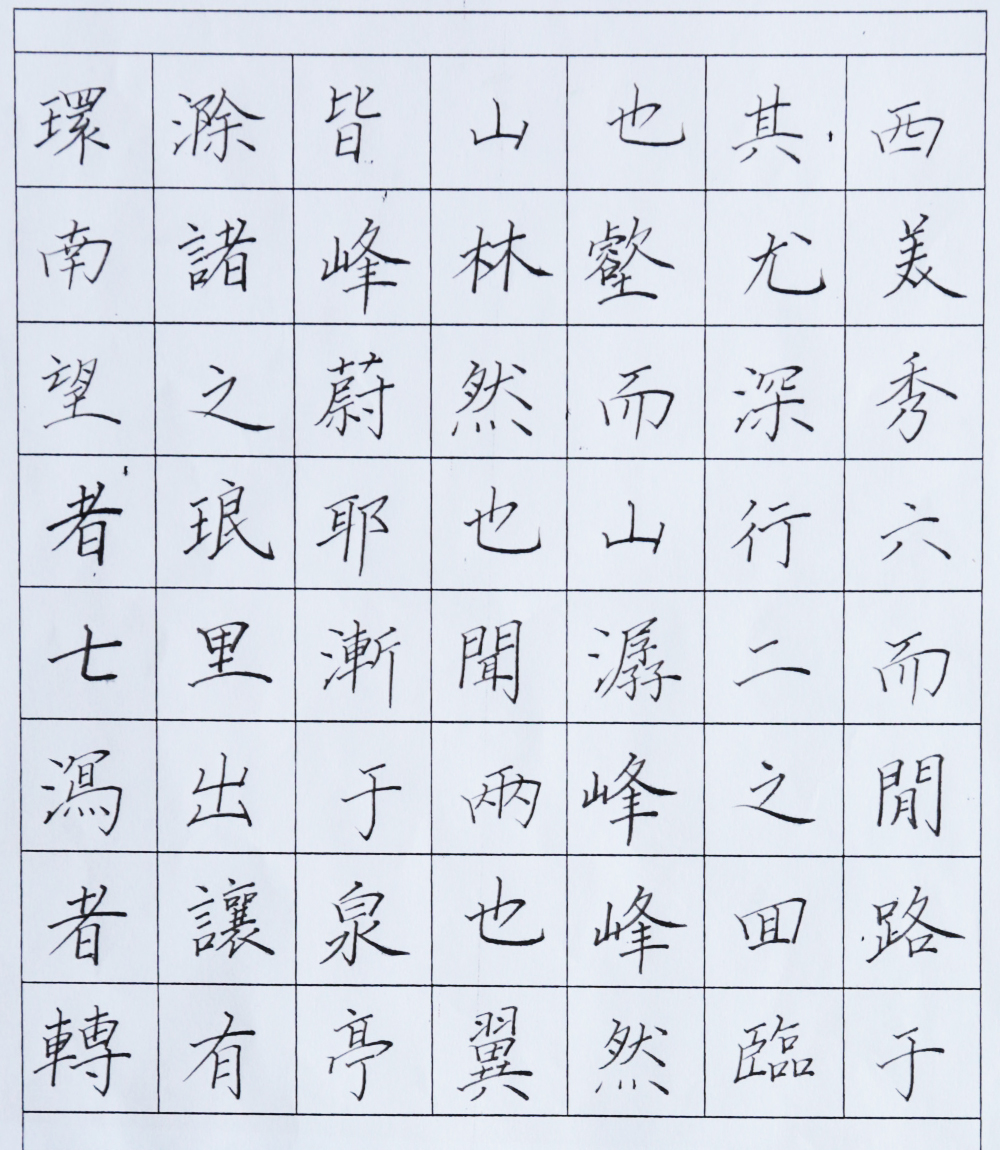 環滁皆山也其西
南諸峰林壑尤美
望之蔚然而深秀
者琅耶也山行六
七里漸聞潺二而
瀉出于兩峰之閒
者讓泉也峰囬路
轉有亭翼然臨于